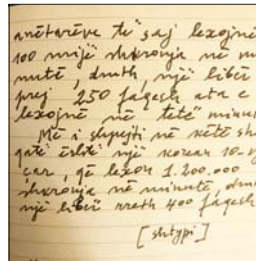 anëtarëve të saj lexojnë
100 mijë shkronja në mi
nutë, dmth, një libër
prej 250 faqesh ata e
lexojnë në tetë minu
Më i shpejti në këtë sh
gatë është një korean 10-v
çar, që lexon 1.200.000
shkronja në minutë, dmt
një libër rreth 400 faqesh
[shtypi]